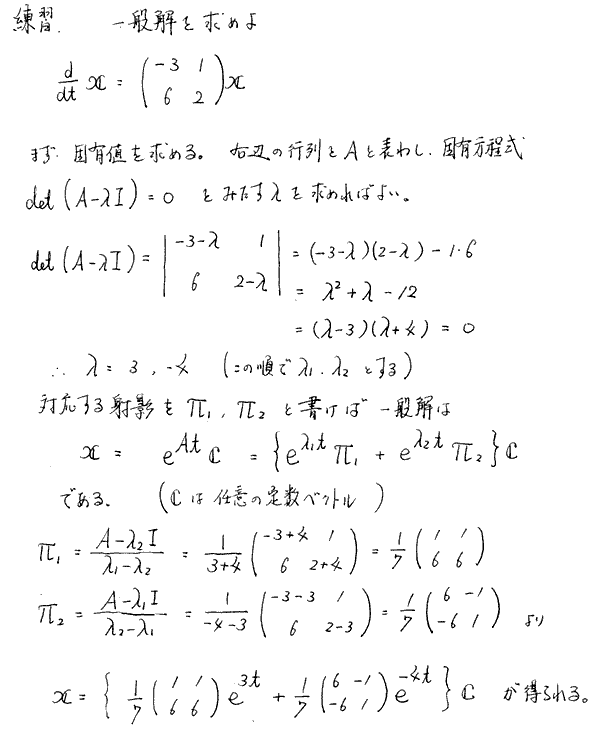 練習. 一般解を求めよ
d/dt 𝕩 = (-3 1; 6 2) 𝕩
まず 固有値を求める。 右辺の行列を A と表わし、固有方程式
det (A-λI) = 0 をみたす λ を求めればよい。
det (A-λI) = |-3-λ 1; 6 2-λ| = (-3-λ)(2-λ) - 1·6
= λ² + λ - 12
= (λ-3)(λ+4) = 0
∴ λ = 3, -4 (この順で λ₁, λ₂ とする)
対応する射影を Π₁, Π₂ と書けば 一般解は
𝕩 = e^{At} ℂ = {e^{λ₁t} Π₁ + e^{λ₂t} Π₂} ℂ
である. (ℂ は 任意の定数ベクトル)
Π₁ = (A-λ₂I)/(λ₁-λ₂) = 1/(3+4) (-3+4 1; 6 2+4) = 1/7 (1 1; 6 6)
Π₂ = (A-λ₁I)/(λ₂-λ₁) = 1/(-4-3) (-3-3 1; 6 2-3) = 1/7 (6 -1; -6 1) より
𝕩 = { 1/7 (1 1; 6 6) e^{3t} + 1/7 (6 -1; -6 1) e^{-4t} } ℂ が得られる。